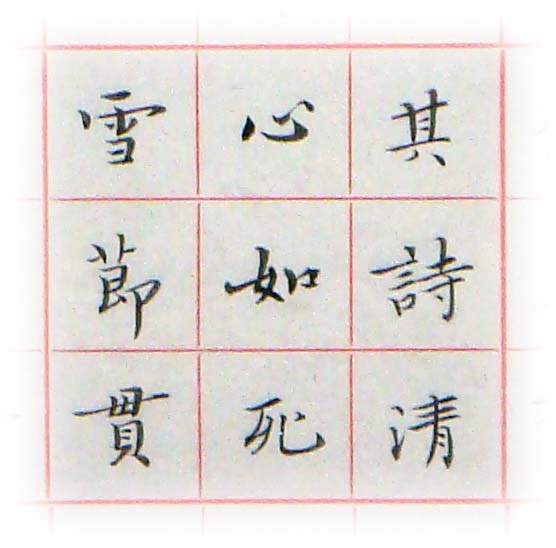 其詩清
心如死
雪節貫